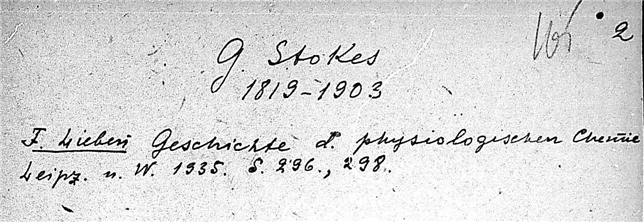 2
G. Stokes
1819-1903
F. Lieben Geschichte d. physiologischen Chemie
Leipz. u. W. 1935. S. 296., 298.